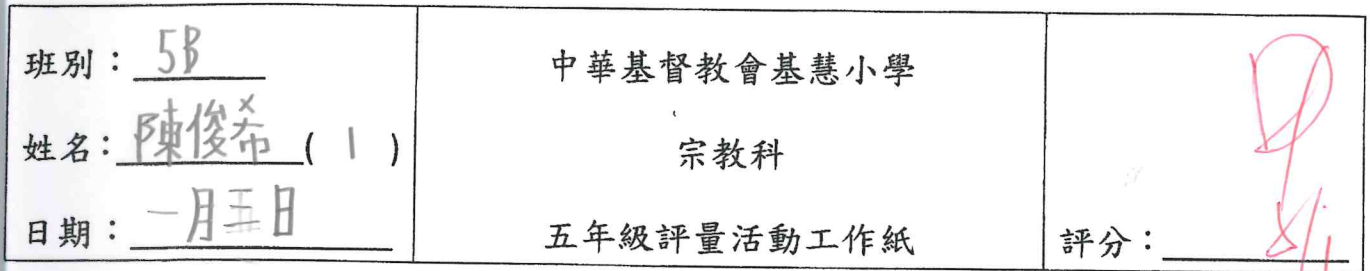 班別：5B
姓名：陳俊希（1）
日期：一月五日
中華基督教會基慧小學
宗教科
五年級評量活動工作紙
評分：